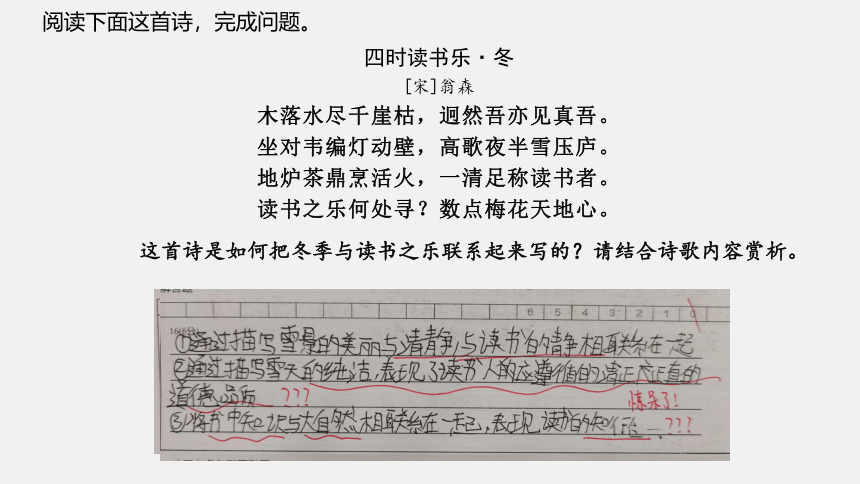 阅读下面这首诗，完成问题。
四时读书乐·冬
[宋]翁森
木落水尽千崖枯，迥然吾亦见真吾。
坐对韦编灯动壁，高歌夜半雪压庐。
地炉茶鼎烹活火，一清足称读书者。
读书之乐何处寻？数点梅花天地心。
这首诗是如何把冬季与读书之乐联系起来写的？请结合诗歌内容赏析。
6 5 4 3 2 1 0
16(6分)
①通过描写雪景的美丽与清静，与读书的静相联系在一起
②通过描写雪天的纯洁，表现了读书人的应遵循的清正正直的
道德品质 ??? 惊呆了!
③将书中知识与大自然相联系在一起，表现读书的知行合一。???